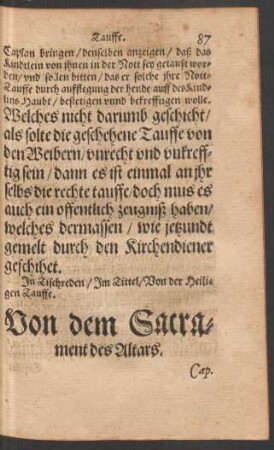 Tauffe. 87
Caplan bringen / denselben anzeigen / daß das
Kindtlein von jhnen in der Nott sey getaufft wor-
den / vnd sollen bitten / das er solche jhre Nott-
Tauffe durch aufflegung der hende auff des Kind-
lins Haubt / bestetigen vnnd bekrefftigen wolle.
Welches nicht darumb geschicht /
als solte die geschehene Tauffe von
den Weibern / vnrecht vnd vnkreff-
tig sein / dann es ist einmal an jhr
selbs die rechte tauffe / doch mus es
auch ein offentlich zeugniß haben /
welches dermassen / wie jetzundt
gemelt durch den Kirchendiener
geschihet.
In Tischreden / Im Tittel / Von der Heili-
gen Tauffe.
Von dem Sacra-
ment des Altars.
Cap.